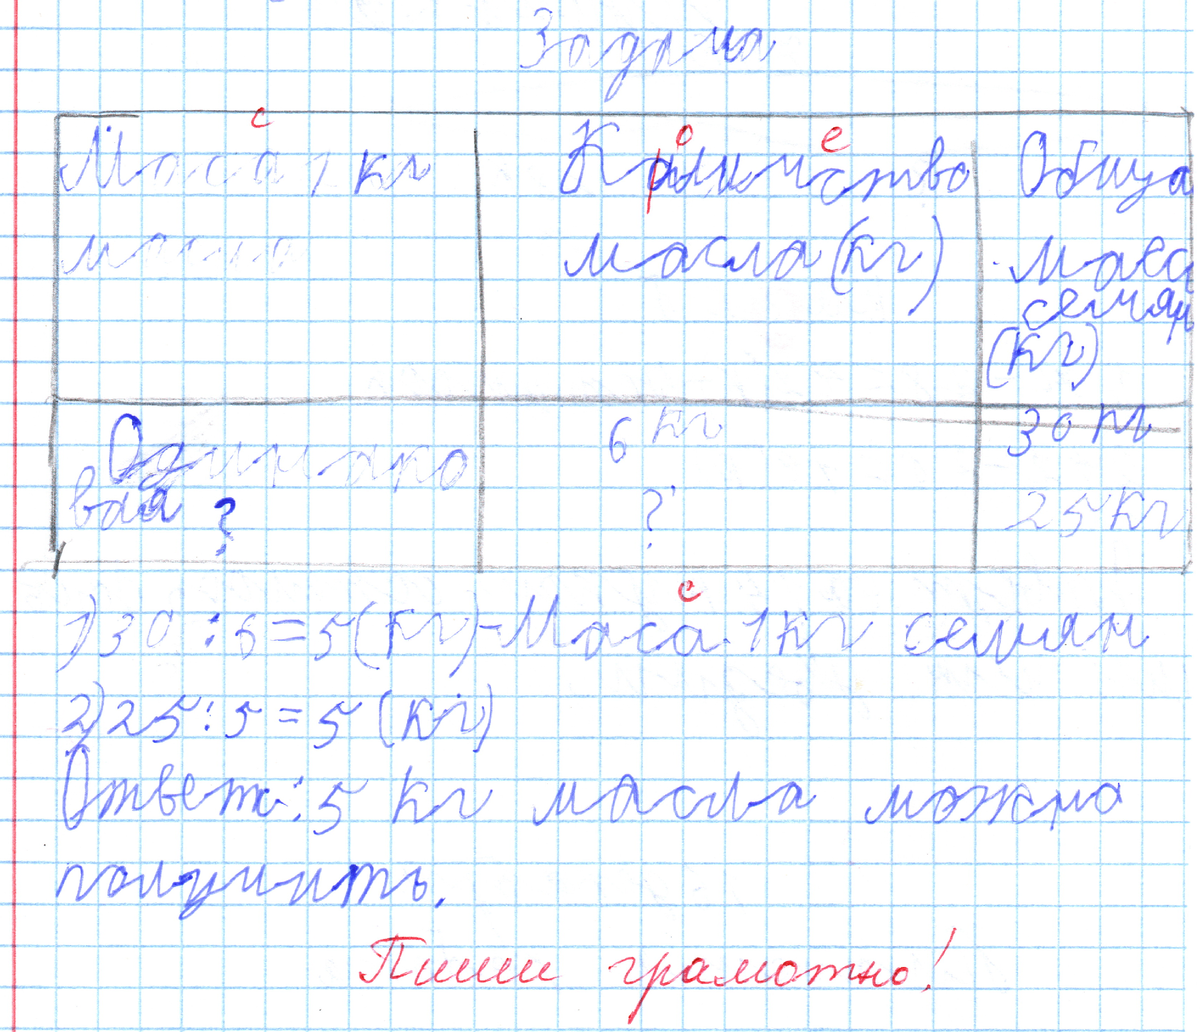 Задача
Маса 1 кг
масла
с
Количиство
о е
масла (кг)
Обща
масс
семян
(кг)
Одинако
вая ?
6 кг
?
30 кг
25 кг
с
1) 30 : 6 = 5 (кг) - Маса 1 кг семян
2) 25 : 5 = 5 (кг)
Ответ: 5 кг масла можно
получить.
Пиши грамотно!